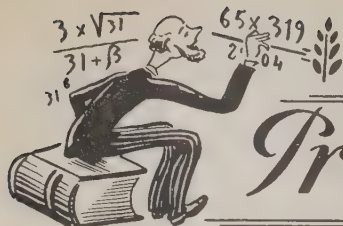 3 x √31
31 + β
31⁶
65 x 319
2 04 =
Pr